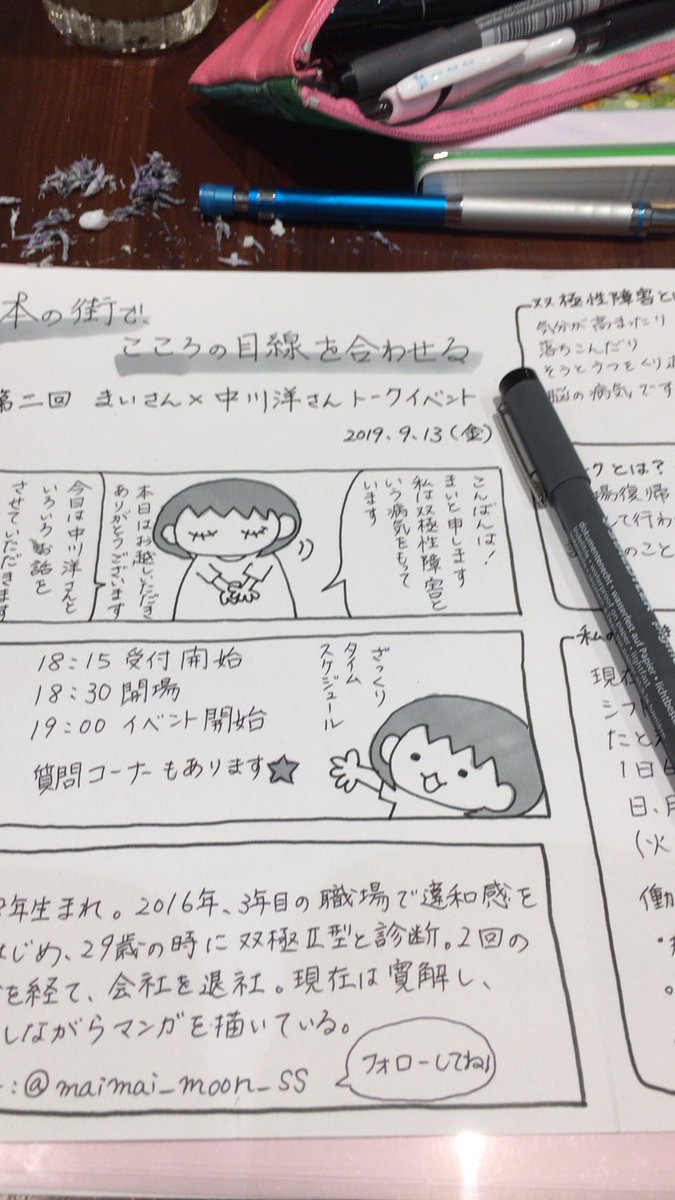 本の街で、
こころの目線を合わせる
第二回 まいさん×中川洋さんトークイベント
2019.9.13(金)
こんばんは!
まいと申します
私は双極性障害と
いう病気をもって
います
本日はお越しいただき
ありがとうございます
今日は中川洋さんと
いろいろお話を
させていただきます
ざっくり
タイム
スケジュール
18:15 受付開始
18:30 開場
19:00 イベント開始
質問コーナーもあります
年生まれ。2016年、3年目の職場で違和感を
はじめ、29歳の時に双極Ⅱ型と診断。2回の
を経て、会社を退社。現在は寛解し、
しながらマンガを描いている。
:@maimai_moon_ss
フォローしてね!
双極性障害と
気分が高まったり
落ちこんだり
そうとうつをくり返
脳の病気です
クとは?
場復帰
して行わ
のこと
私の
現在
シフト
たとえ
1日6
日、月
(火
働
dokumentenecht • wasserfest auf Papier • lichtbest